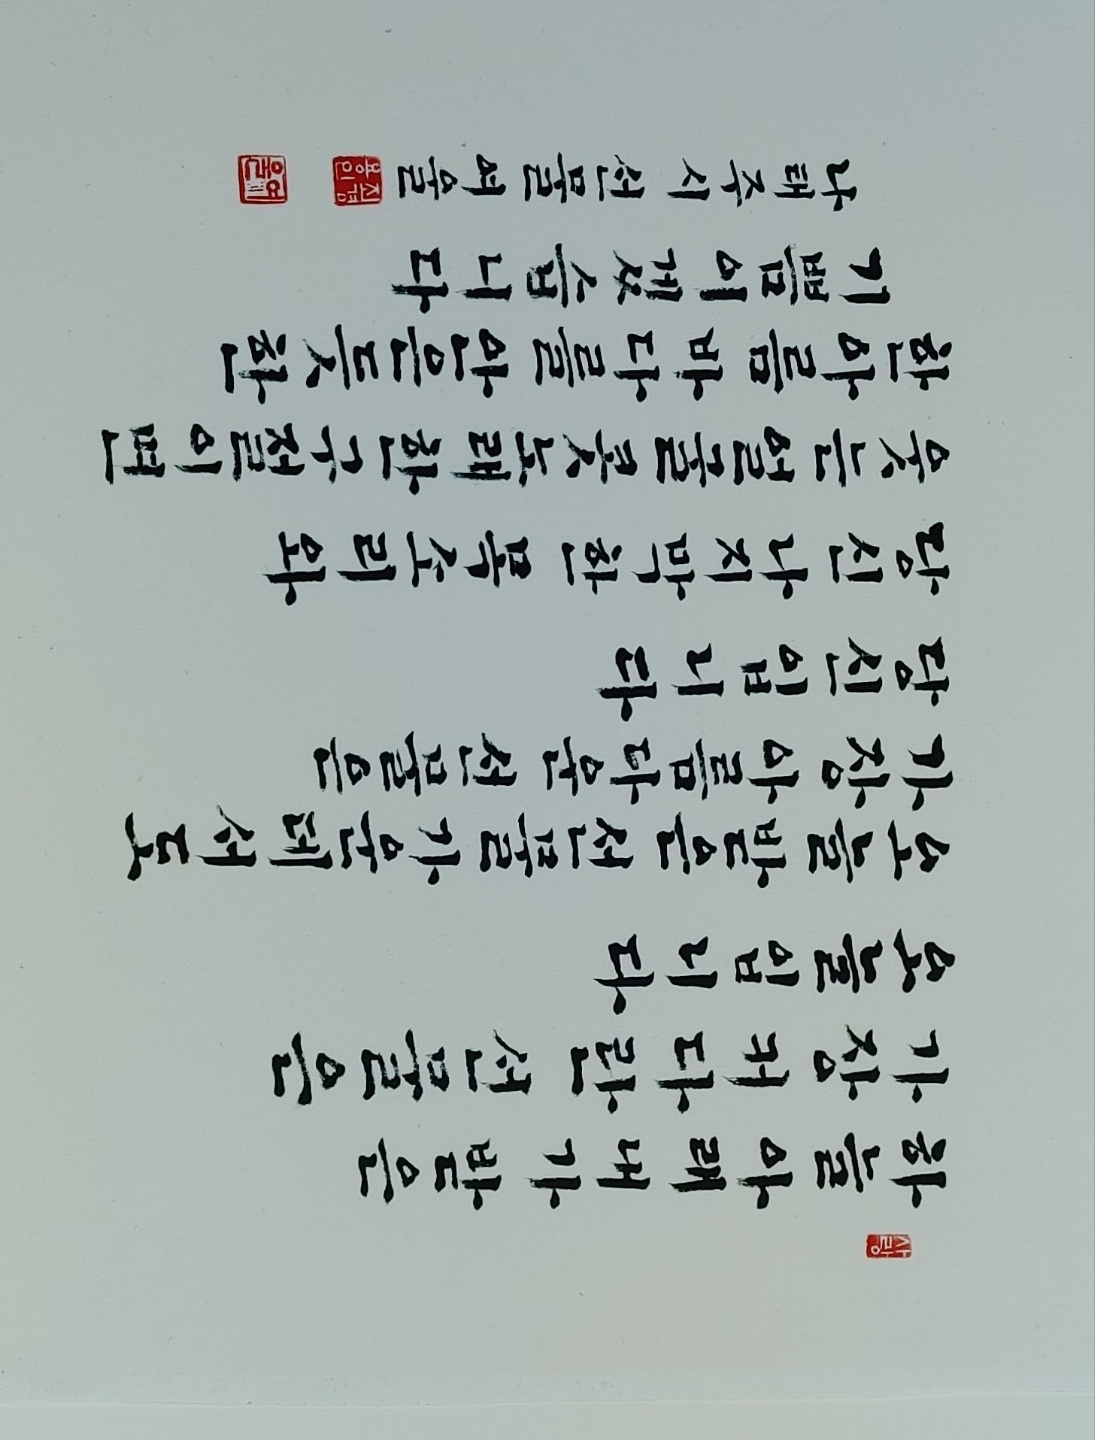 사랑
하늘 아래 내가 받은
가장 커다란 선물은
오늘입니다
오늘 받은 선물 가운데서도
가장 아름다운 선물은
당신입니다
당신 나지막한 목소리와
웃는 얼굴 콧노래 한 구절이면
한아름 바다를 안은 듯한
기쁨이겠습니다
나태주 시 선물 여울
여울